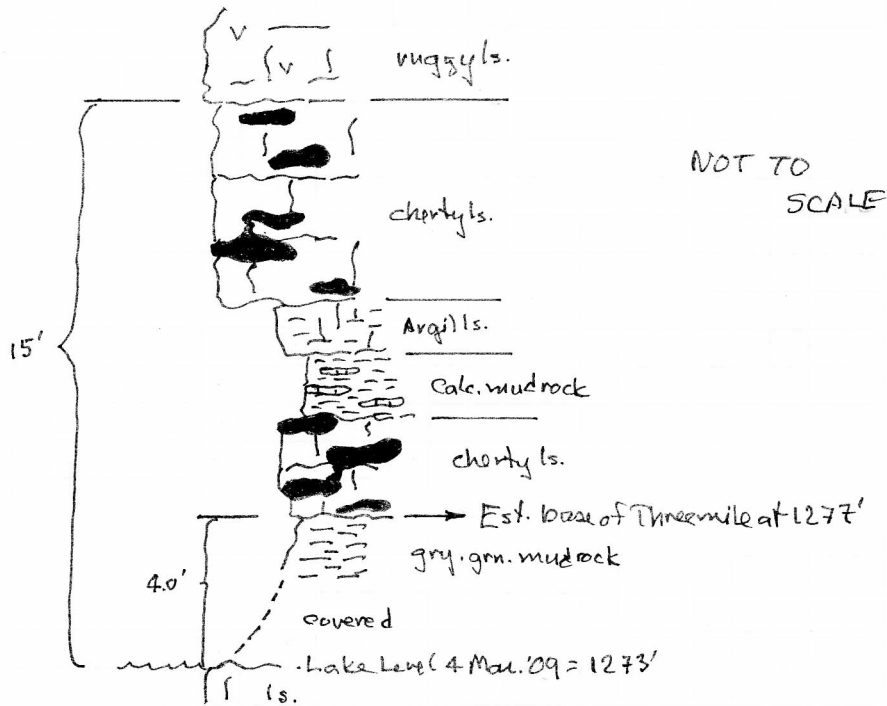 V
V
vuggy ls.
NOT TO
SCALE
cherty ls.
Argil ls.
15'
Calc. mudrock
cherty ls.
Est. base of Threemile at 1277'
gry. grn. mudrock
4.0'
covered
Lake Level (4 Mar. '09 = 1273'
ls.